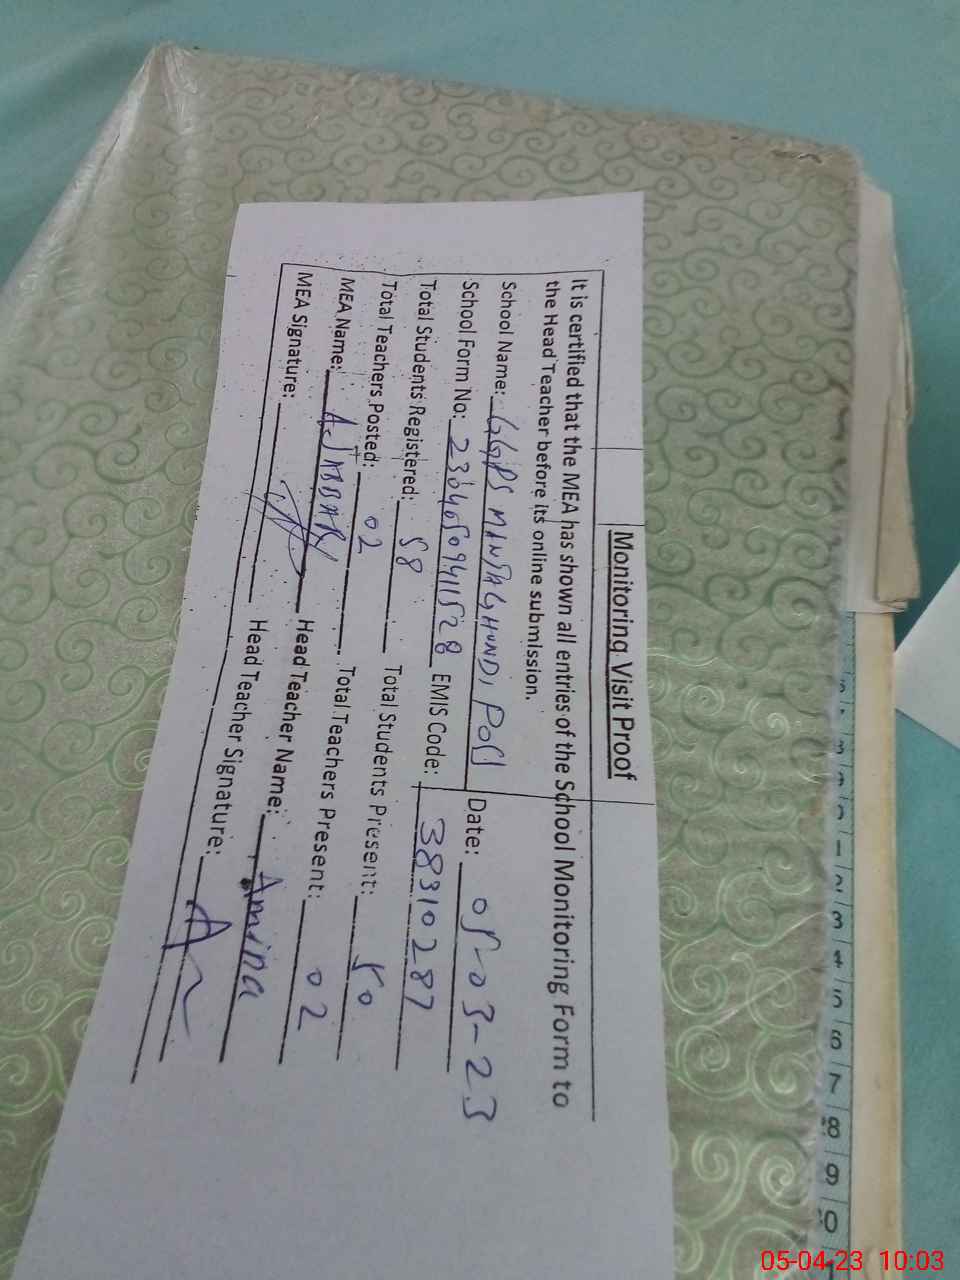 Monitoring Visit Proof
It is certified that the MEA has shown all entries of the School Monitoring Form to
the Head Teacher before its online submission.
School Name: GGPS MANJAGHUNDI Date: 05-03-23
School Form No: 23040509411528 EMIS Code: 38310287
Total Students Registered: 58 Total Students Present: 50
Total Teachers Posted: 02 Total Teachers Present: 02
MEA Name: A.JABBAR Head Teacher Name: Amina
MEA Signature: Head Teacher Signature:
3 4 5 6 7 8 9
05-04-23 10:03